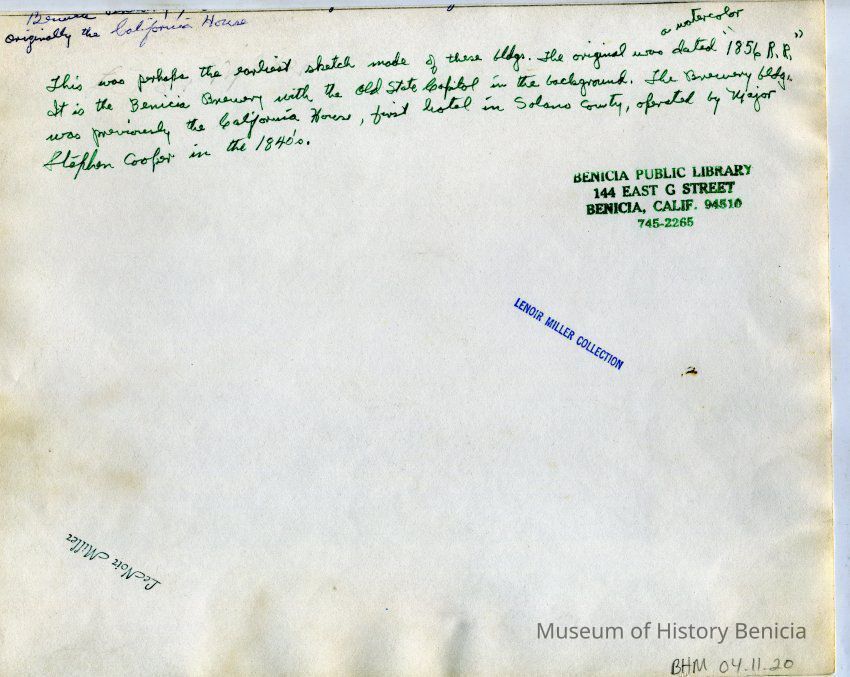 Benicia
originally the California House
a watercolor
This was perhaps the earliest sketch made of these bldgs. The original was dated "1856 R.R."
It is the Benicia Brewery with the old State Capitol in the background. The Brewery bldg.
was previously the California House, first hotel in Solano County, operated by Major
Stephen Cooper in the 1840's.
BENICIA PUBLIC LIBRARY
144 EAST G STREET
BENICIA, CALIF. 94510
745-2265
LENOIR MILLER COLLECTION
LeNoir Miller
Museum of History Benicia
BHM 04.11.20